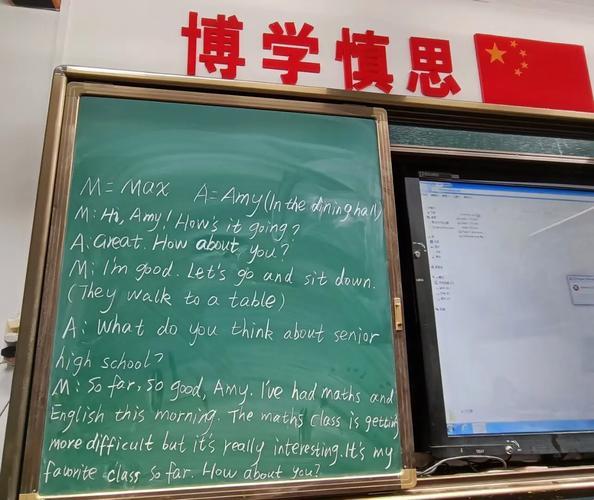 博学慎思
M=Max A=Amy(In the dining hall)
M: Hi, Amy! How's it going?
A: Great. How about you?
M: I'm good. Let's go and sit down.
(They walk to a table)
A: What do you think about senior
high school?
M: So far, so good, Amy. I've had maths and
English this morning. The maths class is getting
more difficult but it's really interesting. It's my
favorite class so far. How about you?